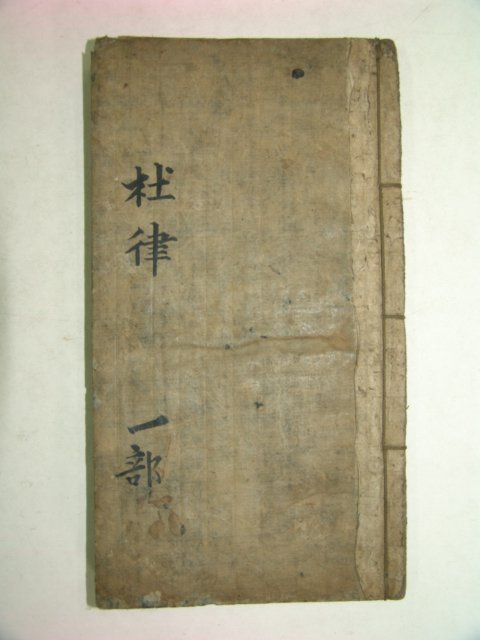 杜律
一部